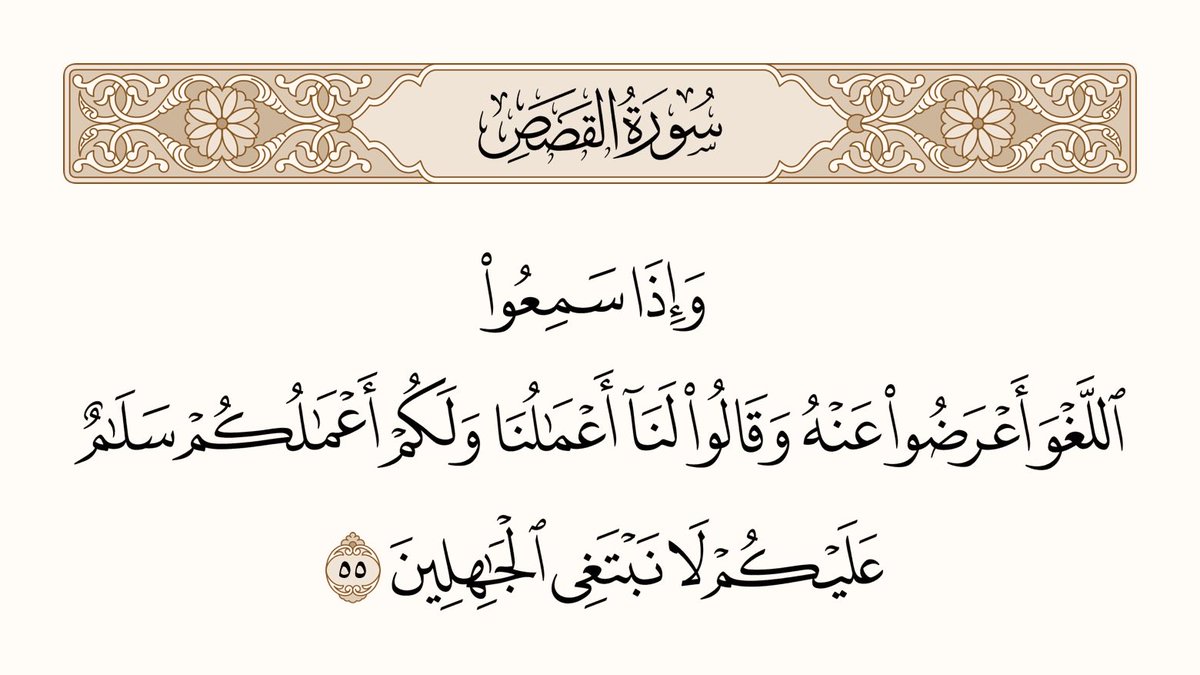 سُورَةُ القَصَصِ
وَإِذَا سَمِعُوا۟
ٱللَّغْوَ أَعْرَضُوا۟ عَنْهُ وَقَالُوا۟ لَنَآ أَعْمَـٰلُنَا وَلَكُمْ أَعْمَـٰلُكُمْ سَلَـٰمٌ
عَلَيْكُمْ لَا نَبْتَغِى ٱلْجَـٰهِلِينَ ٥٥